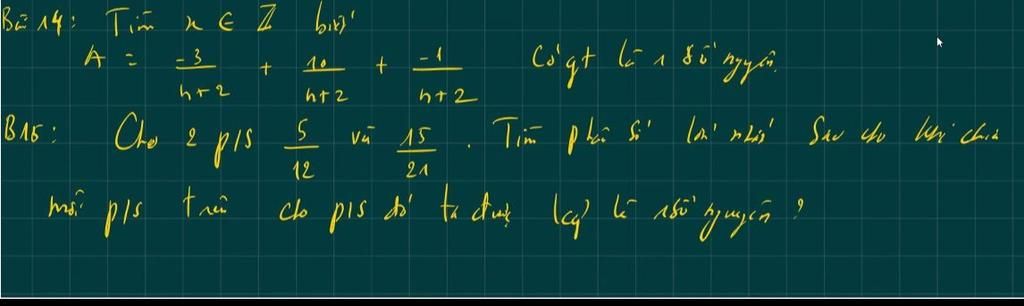 Bài 14: Tìm n ∈ Z biết
A = -3/n+2 + 10/n+2 + -1/n+2 Có gt là 1 số nguyên.
B15: Cho 2 p/s 5/12 và 15/21. Tìm phân số lớn nhất sao cho khi chia
mỗi p/s trên cho p/s đó ta được kq là 1 số nguyên ?